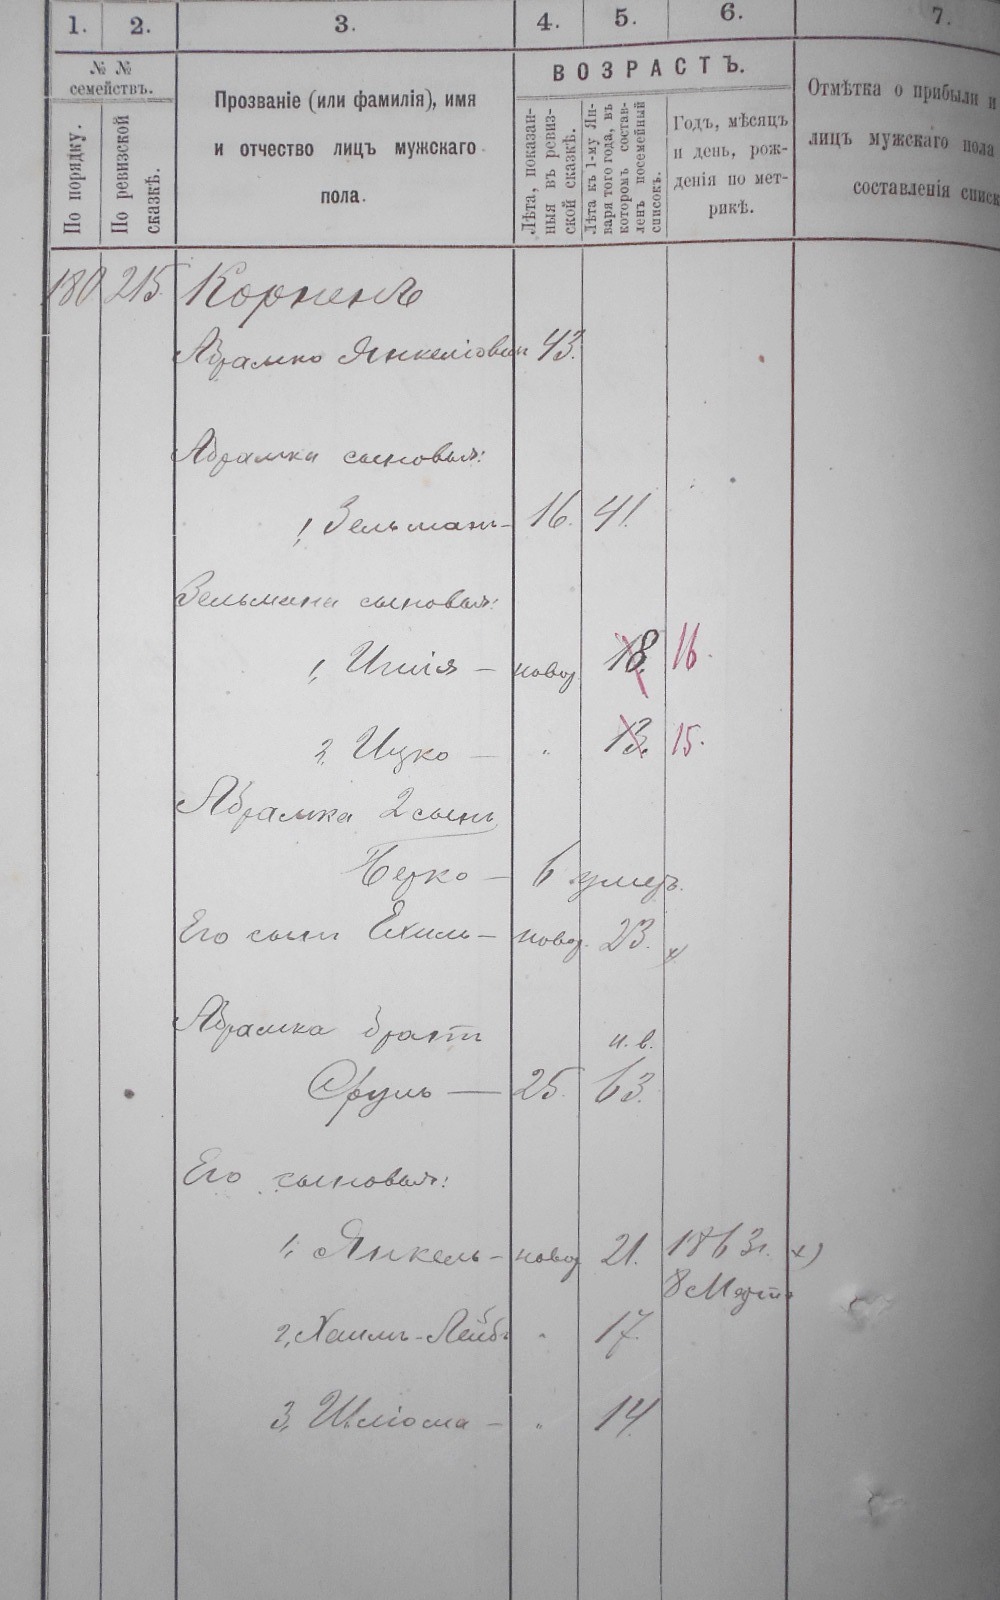 1. 2. 3. 4. 5. 6. 7.
№ № семействъ.
По порядку.
По ревизской сказкѣ.
Прозваніе (или фамилія), имя
и отчество лицъ мужскаго
пола.
ВОЗРАСТЪ.
Лѣта, показан-
ныя въ ревиз-
ской сказкѣ.
Лѣта къ 1-му Ян-
варя того года, въ
которомъ состав-
ленъ посемейный
списокъ.
Годъ, мѣсяцъ
и день, рож-
денія по мет-
рикѣ.
Отмѣтка о прибыли и
лицъ мужскаго пола
составленія списк
180 215
Абрамко Янкеліовичъ 43.
Абрамка сыновья:
1, Зельманъ - 16. 41.
Зельмана сыновья:
1, - новор 18. 16.
2, Ицко - " 13. 15.
Абрамка 2 сынъ
Берко - 6 умеръ.
Его сынъ Ехиль - новор. 23. х
Абрамка братъ н. в.
Сруль - 25. 63.
Его сыновья:
1, Янкель - новор 21. 1863г. х)
8 Марта
2, Хаимъ-Лейбъ " 17.
3, Шліома - " 14.